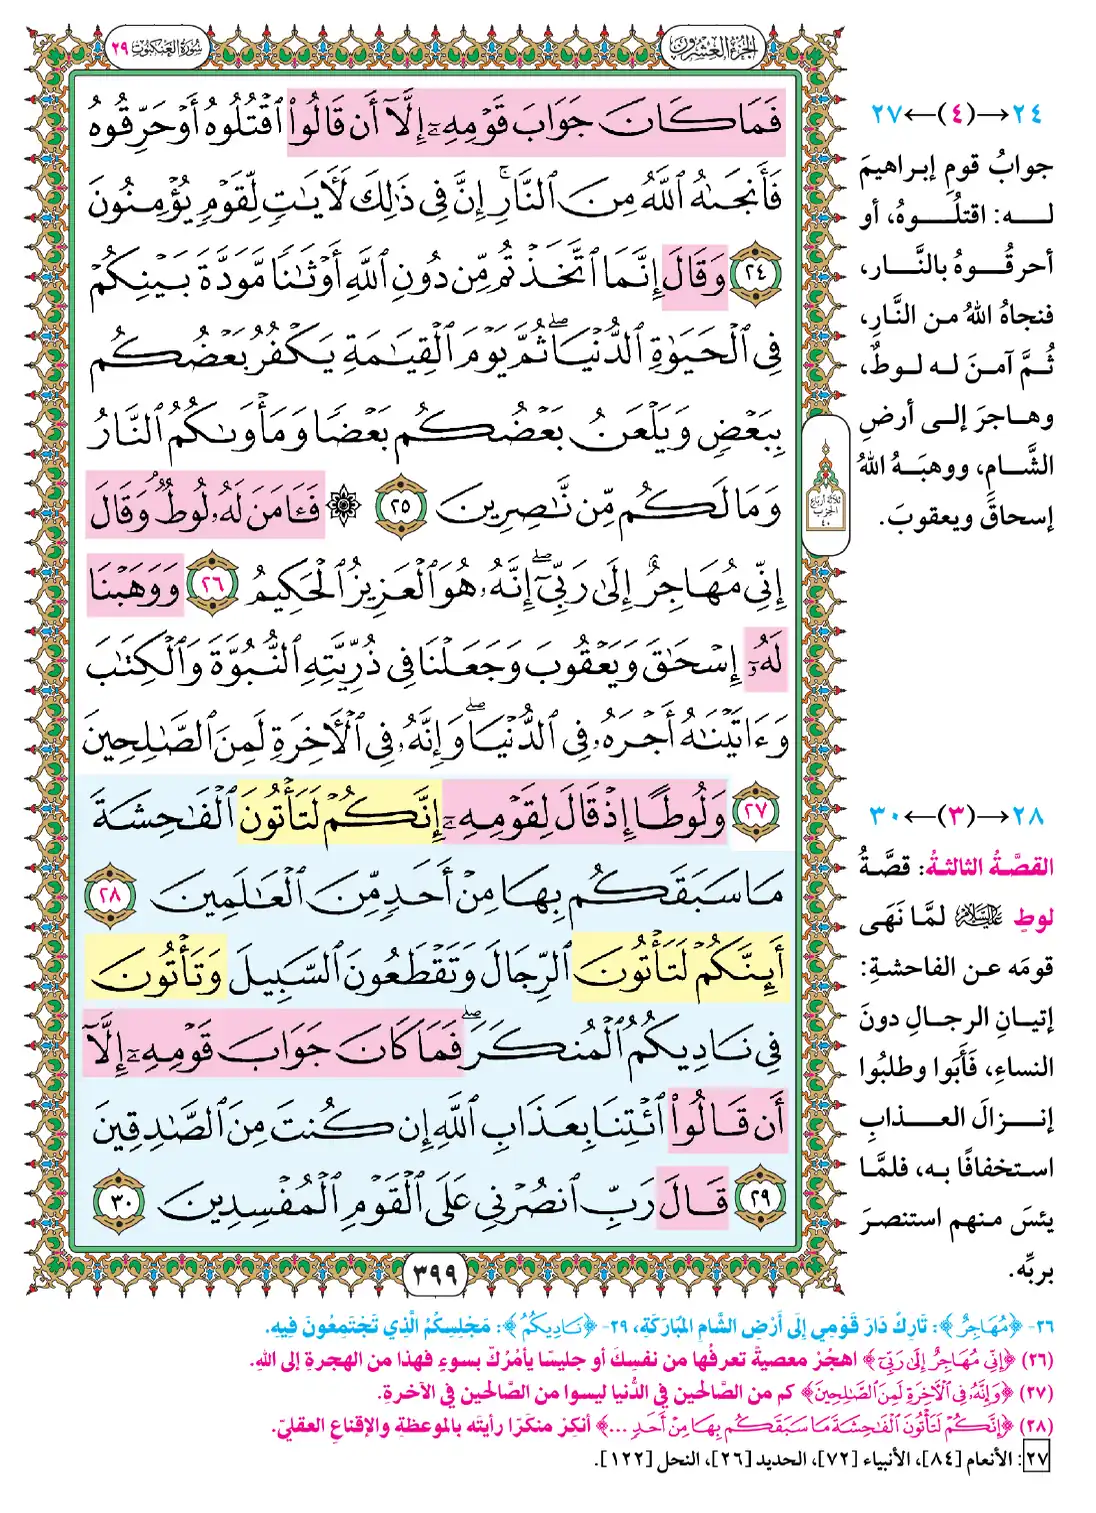 الجزء العشرون
سورة العنكبوت ٢٩
فَمَا كَانَ جَوَابَ قَوْمِهِۦٓ إِلَّآ أَن قَالُوا۟ ٱقْتُلُوهُ أَوْ حَرِّقُوهُ
فَأَنجَىٰهُ ٱللَّهُ مِنَ ٱلنَّارِ ۚ إِنَّ فِى ذَٰلِكَ لَـَٔايَـٰتٍ لِّقَوْمٍ يُؤْمِنُونَ
٢٤ وَقَالَ إِنَّمَا ٱتَّخَذْتُم مِّن دُونِ ٱللَّهِ أَوْثَـٰنًا مَّوَدَّةَ بَيْنِكُمْ
فِى ٱلْحَيَوٰةِ ٱلدُّنْيَا ۖ ثُمَّ يَوْمَ ٱلْقِيَـٰمَةِ يَكْفُرُ بَعْضُكُم
بِبَعْضٍ وَيَلْعَنُ بَعْضُكُم بَعْضًا وَمَأْوَىٰكُمُ ٱلنَّارُ
وَمَا لَكُم مِّن نَّـٰصِرِينَ ٢٥ ۞ فَـَٔامَنَ لَهُۥ لُوطٌ ۘ وَقَالَ
إِنِّى مُهَاجِرٌ إِلَىٰ رَبِّىٓ ۖ إِنَّهُۥ هُوَ ٱلْعَزِيزُ ٱلْحَكِيمُ ٢٦ وَوَهَبْنَا
لَهُۥٓ إِسْحَـٰقَ وَيَعْقُوبَ وَجَعَلْنَا فِى ذُرِّيَّتِهِ ٱلنُّبُوَّةَ وَٱلْكِتَـٰبَ
وَءَاتَيْنَـٰهُ أَجْرَهُۥ فِى ٱلدُّنْيَا ۖ وَإِنَّهُۥ فِى ٱلْـَٔاخِرَةِ لَمِنَ ٱلصَّـٰلِحِينَ
٢٧ وَلُوطًا إِذْ قَالَ لِقَوْمِهِۦٓ إِنَّكُمْ لَتَأْتُونَ ٱلْفَـٰحِشَةَ
مَا سَبَقَكُم بِهَا مِنْ أَحَدٍ مِّنَ ٱلْعَـٰلَمِينَ ٢٨
أَئِنَّكُمْ لَتَأْتُونَ ٱلرِّجَالَ وَتَقْطَعُونَ ٱلسَّبِيلَ وَتَأْتُونَ
فِى نَادِيكُمُ ٱلْمُنكَرَ ۖ فَمَا كَانَ جَوَابَ قَوْمِهِۦٓ إِلَّآ
أَن قَالُوا۟ ٱئْتِنَا بِعَذَابِ ٱللَّهِ إِن كُنتَ مِنَ ٱلصَّـٰدِقِينَ
٢٩ قَالَ رَبِّ ٱنصُرْنِى عَلَى ٱلْقَوْمِ ٱلْمُفْسِدِينَ ٣٠
٣٩٩
ثلاثة أرباع
الحزب
٤٠
٢٤→(٤)←٢٧
جوابُ قومِ إبراهيمَ
له: اقتلُوهُ، أو
أحرقُوهُ بالنَّار،
فنجاهُ اللهُ من النَّارِ،
ثُمَّ آمنَ له لوطٌ،
وهاجرَ إلى أرضِ
الشَّامِ، ووهبَهُ اللهُ
إسحاقَ ويعقوبَ.
٢٨→(٣)←٣٠
القصَّةُ الثالثةُ: قصَّةُ
لوطٍ عليه السلام لمَّا نَهَى
قومَه عن الفاحشةِ:
إتيانِ الرجالِ دونَ
النساءِ، فَأَبَوا وطلبُوا
إنزالَ العذابِ
استخفافًا به، فلمَّا
يئسَ منهم استنصرَ
بربِّه.
٢٦- ﴿مُهَاجِرٌ﴾: تَارِكٌ دَارَ قَوْمِي إِلَى أَرْضِ الشَّامِ المُبَارَكَةِ، ٢٩- ﴿نَادِيكُمُ﴾: مَجْلِسِكُمْ الَّذِي تَجْتَمِعُونَ فِيهِ.
(٢٦) ﴿إِنِّى مُهَاجِرٌ إِلَىٰ رَبِّىٓ﴾ اهجُرْ معصيةً تعرفُها من نفسِكَ أو جليسًا يأمُرُكَ بسوءٍ فهذا من الهجرةِ إلى اللهِ.
(٢٧) ﴿وَإِنَّهُۥ فِى ٱلْـَٔاخِرَةِ لَمِنَ ٱلصَّـٰلِحِينَ﴾ كم من الصَّالحين في الدُّنيا ليسوا من الصَّالحين في الآخرةِ.
(٢٨) ﴿إِنَّكُمْ لَتَأْتُونَ ٱلْفَـٰحِشَةَ مَا سَبَقَكُم بِهَا مِنْ أَحَدٍ ...﴾ أنكِرْ منكَرًا رأيتَه بالموعظةِ والإقناعِ العقليِّ.
٢٧: الأنعام [٨٤]، الأنبياء [٧٢]، الحديد [٢٦]، النحل [١٢٢].